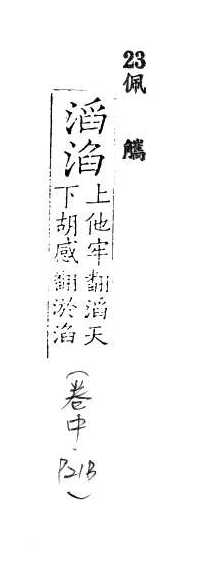 23佩 觿
滔淊
上他牢翻滔天
下胡感翻淤淊
(卷中.P21B)